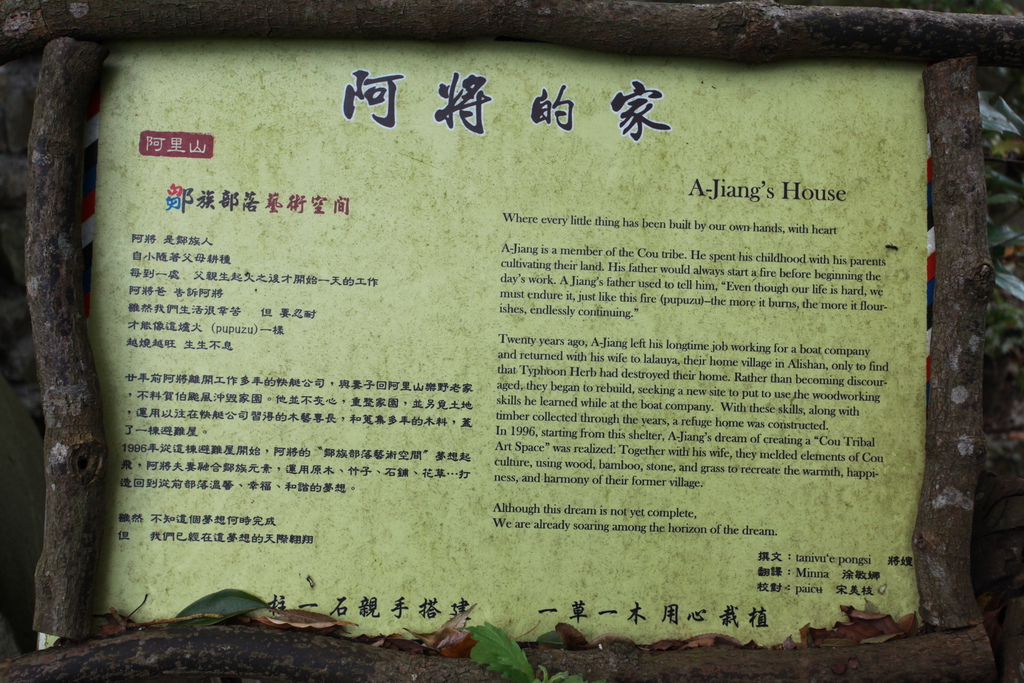 阿將的家
阿里山
鄒族部落藝術空間
阿將 是鄒族人
自小隨著父母耕種
每到一處 父親生起火之後才開始一天的工作
阿將爸 告訴阿將
雖然我們生活很辛苦 但 要忍耐
才能像這爐火 (pupuzu)一樣
越燒越旺 生生不息
廿年前阿將離開工作多年的快艇公司，與妻子回阿里山樂野老家
，不料賀伯颱風沖毀家園。他並不灰心，重整家園，並另覓土地
，運用以往在快艇公司習得的木藝專長，和蒐集多年的木料，蓋
了一棟避難屋。
1996年從這棟避難屋開始，阿將的"鄒族部落藝術空間"夢想起
飛，阿將夫妻融合鄒族元素，運用原木、竹子、石鋪、花草…打
造回到從前部落溫馨、幸福、和諧的夢想。
雖然 不知這個夢想何時完成
但 我們已經在這夢想的天際翱翔
A-Jiang's House
Where every little thing has been built by our own hands, with heart
A-Jiang is a member of the Cou tribe. He spent his childhood with his parents
cultivating their land. His father would always start a fire before beginning the
day's work. A Jiang's father used to tell him, "Even though our life is hard, we
must endure it, just like this fire (pupuzu)–the more it burns, the more it flour-
ishes, endlessly continuing."
Twenty years ago, A-Jiang left his longtime job working for a boat company
and returned with his wife to lalauya, their home village in Alishan, only to find
that Typhoon Herb had destroyed their home. Rather than becoming discour-
aged, they began to rebuild, seeking a new site to put to use the woodworking
skills he learned while at the boat company. With these skills, along with
timber collected through the years, a refuge home was constructed.
In 1996, starting from this shelter, A-Jiang's dream of creating a "Cou Tribal
Art Space" was realized. Together with his wife, they melded elements of Cou
culture, using wood, bamboo, stone, and grass to recreate the warmth, happi-
ness, and harmony of their former village.
Although this dream is not yet complete,
We are already soaring among the horizon of the dream.
撰文：tanivu'e pongsi 將嫂
翻譯：Minna 徐敏娜
校對：paicʉ 宋美枝
柱一石親手搭建 一草一木用心栽植